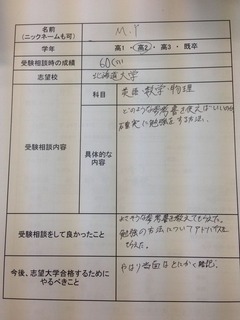 名前
(ニックネームも可)
M.Y
学年
高1・高2・高3・既卒
受験相談時の成績
60くらい
志望校
北海道大学
受験相談内容
科目
英語・数学・物理
具体的な
内容
どのような参考書を使えばいいのか
確実に勉強をする方法。
受験相談をして良かったこと
参考書を教えてもらえた。
勉強の方法についてアドバイスを
もらえた。
今後、志望大学合格するために
やるべきこと
やはり当面はとにかく暗記。